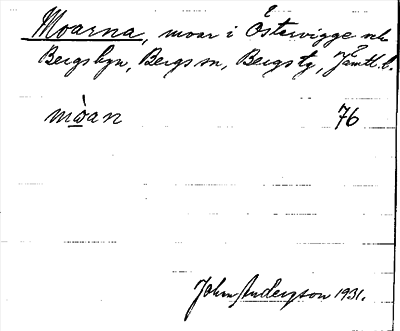 Moarna, moar i Östervigge och
Bergsbyn, Bergs sn, Bergs tg, Jämtl. l.
mòan 76
John Anderzson 1931.